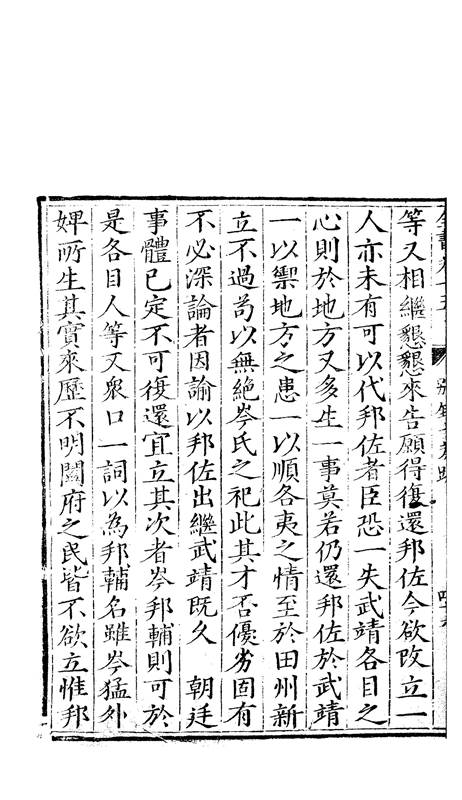 等又相繼懇懇來告願得復還邦佐今欲改立一
人亦未有可以代邦佐者臣恐一失武靖各目之
心則於地方又多生一事莫若仍還邦佐於武靖
一以禦地方之患一以順各夷之情至於田州新
立不過苟以無絕岑氏之祀此其才否優劣固有
不必深論者因諭以邦佐出繼武靖既久　朝廷
事體已定不可復還宜立其次者岑邦輔則可於
是各目人等又衆口一詞以為邦輔名雖岑猛外
婢所生其實來歷不明闔府之民皆不欲立惟邦